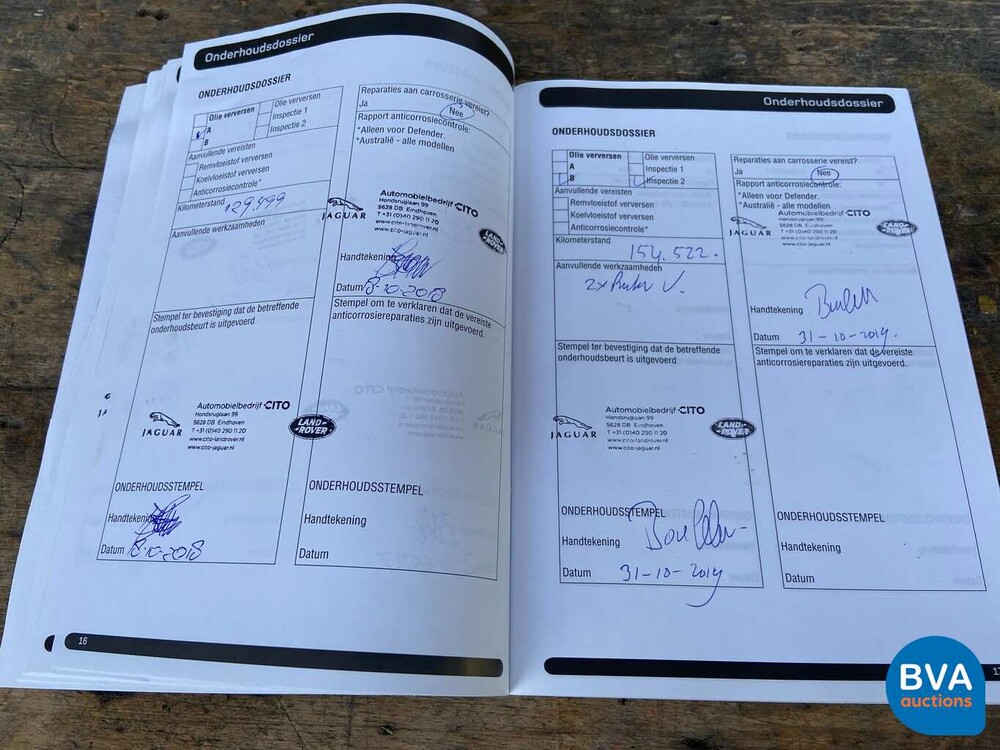 Onderhoudsdossier
ONDERHOUDSDOSSIER
Olie verversen
A
B
Olie verversen
Inspectie 1
Inspectie 2
Aanvullende vereisten
Remvloeistof verversen
Koelvloeistof verversen
Anticorrosiecontrole*
Kilometerstand 129.499
Aanvullende werkzaamheden
Stempel ter bevestiging dat de betreffende
onderhoudsbeurt is uitgevoerd
JAGUAR
Automobielbedrijf CITO
Hondsruglaan 99
5628 DB Eindhoven
T +31 (0)40 290 11 20
www.cito-landrover.nl
www.cito-jaguar.nl
LAND
ROVER
ONDERHOUDSSTEMPEL
Handtekening
Datum 18-10-2018
Reparaties aan carrosserie vereist?
Ja Nee
Rapport anticorrosiecontrole:
*Alleen voor Defender.
*Australië - alle modellen
JAGUAR
Automobielbedrijf CITO
Hondsruglaan 99
5628 DB Eindhoven
T +31 (0)40 290 11 20
www.cito-landrover.nl
www.cito-jaguar.nl
LAND
ROVER
Handtekening
Datum 18-10-2018
Stempel om te verklaren dat de vereiste
anticorrosiereparaties zijn uitgevoerd.
ONDERHOUDSSTEMPEL
Handtekening
Datum
16
Onderhoudsdossier
ONDERHOUDSDOSSIER
Olie verversen
A
B
Olie verversen
Inspectie 1
Inspectie 2
Aanvullende vereisten
Remvloeistof verversen
Koelvloeistof verversen
Anticorrosiecontrole*
Kilometerstand
154.522.
Aanvullende werkzaamheden
2x
Stempel ter bevestiging dat de betreffende
onderhoudsbeurt is uitgevoerd
JAGUAR
Automobielbedrijf CITO
Hondsruglaan 99
5628 DB Eindhoven
T +31 (0)40 290 11 20
www.cito-landrover.nl
www.cito-jaguar.nl
LAND
ROVER
ONDERHOUDSSTEMPEL
Handtekening
Datum 31-10-2019
Reparaties aan carrosserie vereist?
Ja Nee
Rapport anticorrosiecontrole:
*Alleen voor Defender.
*Australië - alle modellen
JAGUAR
Automobielbedrijf CITO
Hondsruglaan 99
5628 DB Eindhoven
T +31 (0)40 290 11 20
www.cito-landrover.nl
www.cito-jaguar.nl
LAND
ROVER
Handtekening
Datum 31-10-2019.
Stempel om te verklaren dat de vereiste
anticorrosiereparaties zijn uitgevoerd.
ONDERHOUDSSTEMPEL
Handtekening
Datum
BVA
auctions